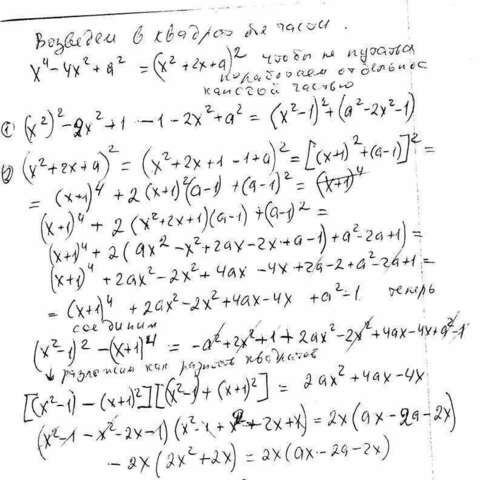 Возведем в квадрат обе части.
x⁴-4x²+a² = (x²+2x+a)² чтобы не путаться
поработаем отдельно с
каждой частью
① (x²)²-2x²+1 -1-2x²+a² = (x²-1)²+(a²-2x²-1)
② (x²+2x+a)² = (x²+2x+1-1+a)² = [(x+1)²+(a-1)]² =
= (x+1)⁴ + 2(x+1)²(a-1) + (a-1)² = (x+1)⁴
(x+1)⁴ + 2(x²+2x+1)(a-1) + (a-1)² =
(x+1)⁴ + 2(ax²-x²+2ax-2x+a-1)+a²-2a+1) =
(x+1)⁴ + 2ax²-2x²+4ax-4x+2a-2+a²-2a+1 =
= (x+1)⁴ + 2ax²-2x²+4ax-4x +a²-1 теперь
соединим
(x²-1)²-(x+1)⁴ = -a²+2x²+1+2ax²-2x²+4ax-4x+a²-1
↓ разложим как разность квадратов
[(x²-1)-(x+1)²][(x²-1)+(x+1)²] = 2ax²+4ax-4x
(x²-1-x²-2x-1)(x²-1+x²+2x+1) = 2x(ax-2a-2x)
-2x(2x²+2x) = 2x(ax-2a-2x)